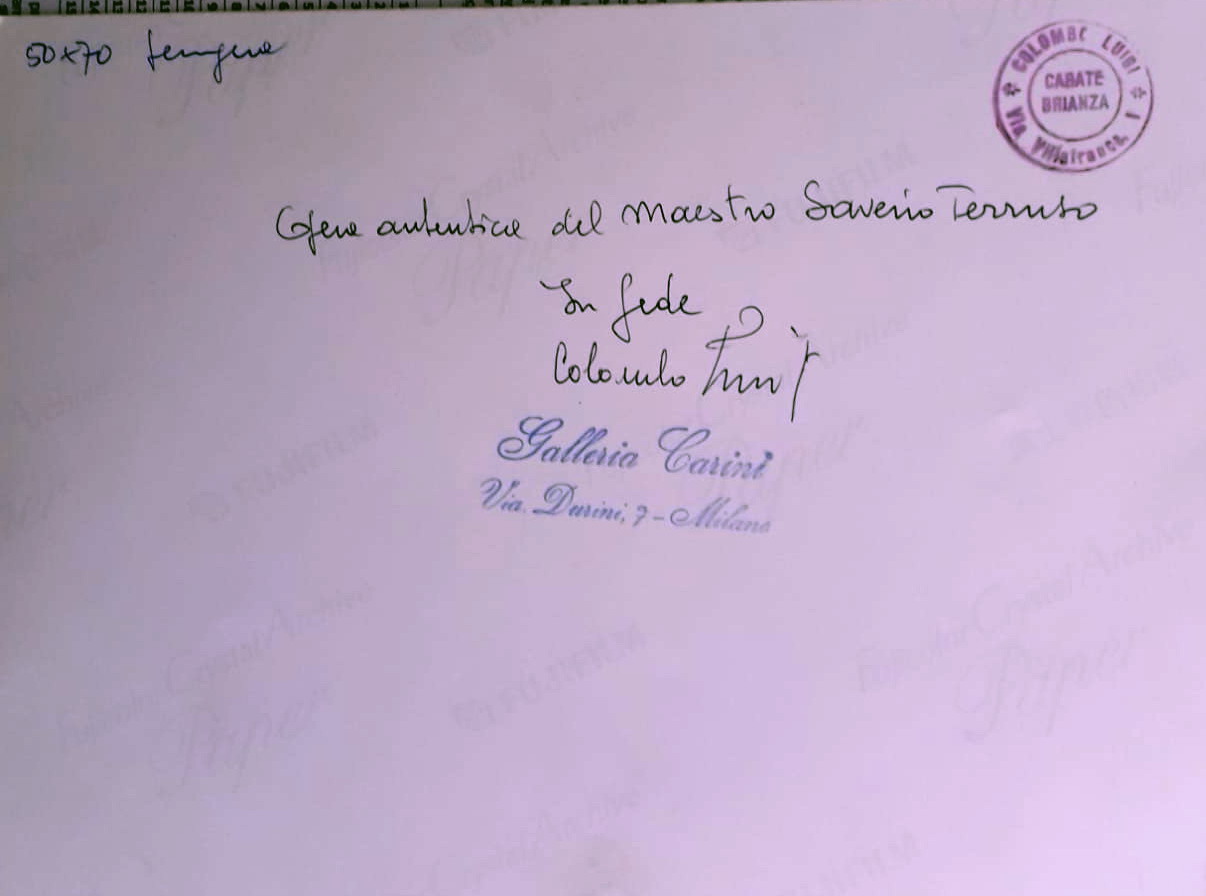 50x70 tempera
COLOMBO LUIGI
CABATE
BRIANZA
Via Villafranca, 1
Opera autentica del Maestro Saverio Terruso
In fede
Colombo Luigi
Galleria Carini
Via Durini, 7 - Milano
Fujicolor Crystal Archive
Paper
FUJIFILM